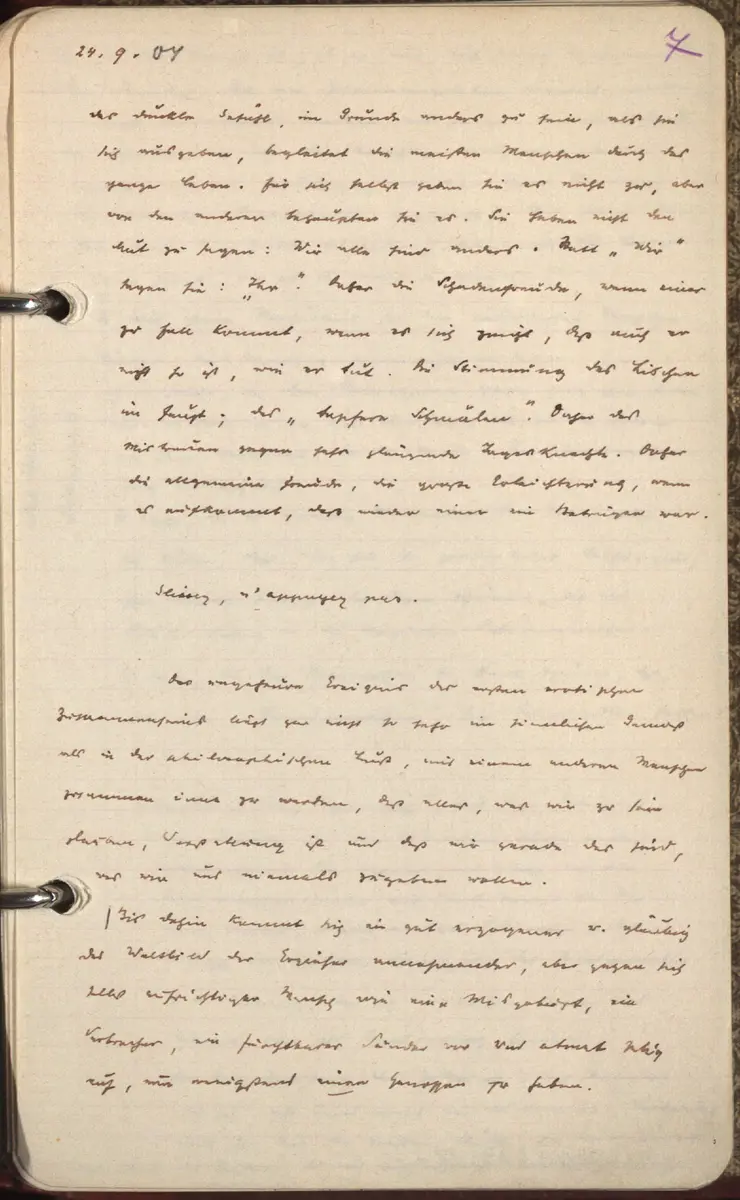 24. 9. 07
7
das dunkle Gefühl, im Grunde anders zu sein, als sie
sich ausgeben, begleitet die meisten Menschen durch das
ganze Leben. Für sich selbst geben sie es nicht zu, aber
von den anderen behaupten sie es. Sie haben nicht den
Mut zu sagen: Wir alle sind anders. Statt „Wir“
sagen sie: „Ihr“. Daher die Schadenfreude, wenn einer
zu Fall kommt, wenn es sich zeigt, daß auch er
nicht so ist, wie er tut. Die Stimmung des Lieschen
im Faust; das „tapfere Schmälen“. Daher das
Mistrauen gegen sehr glänzende Daher
die allgemeine Freude, die große Erleichterung, wenn
es aufkommt, daß wieder einer ein Betrüger war.
Glissez, n'appuyez pas.
Das ungeheure Ereignis des ersten erotischen
Zusammenseins liegt gar nicht so sehr im sinnlichen Genuß
als in der philosophischen Lust, mit einem anderen Menschen
zusammen inne zu werden, daß alles, was wir zu sein
glauben, Verstellung ist und daß wir gerade das sind,
was wir uns niemals zugeben wollen.
Bis dahin kommt sich ein gut erzogener u. gläubig
das Weltbild der Erzieher annehmender, aber gegen sich
selbst aufrichtiger Mensch wie eine Misgeburt, ein
Verbrecher, ein furchtbarer Sünder vor und atmet selig
auf, nun wenigstens einen Genossen zu haben.